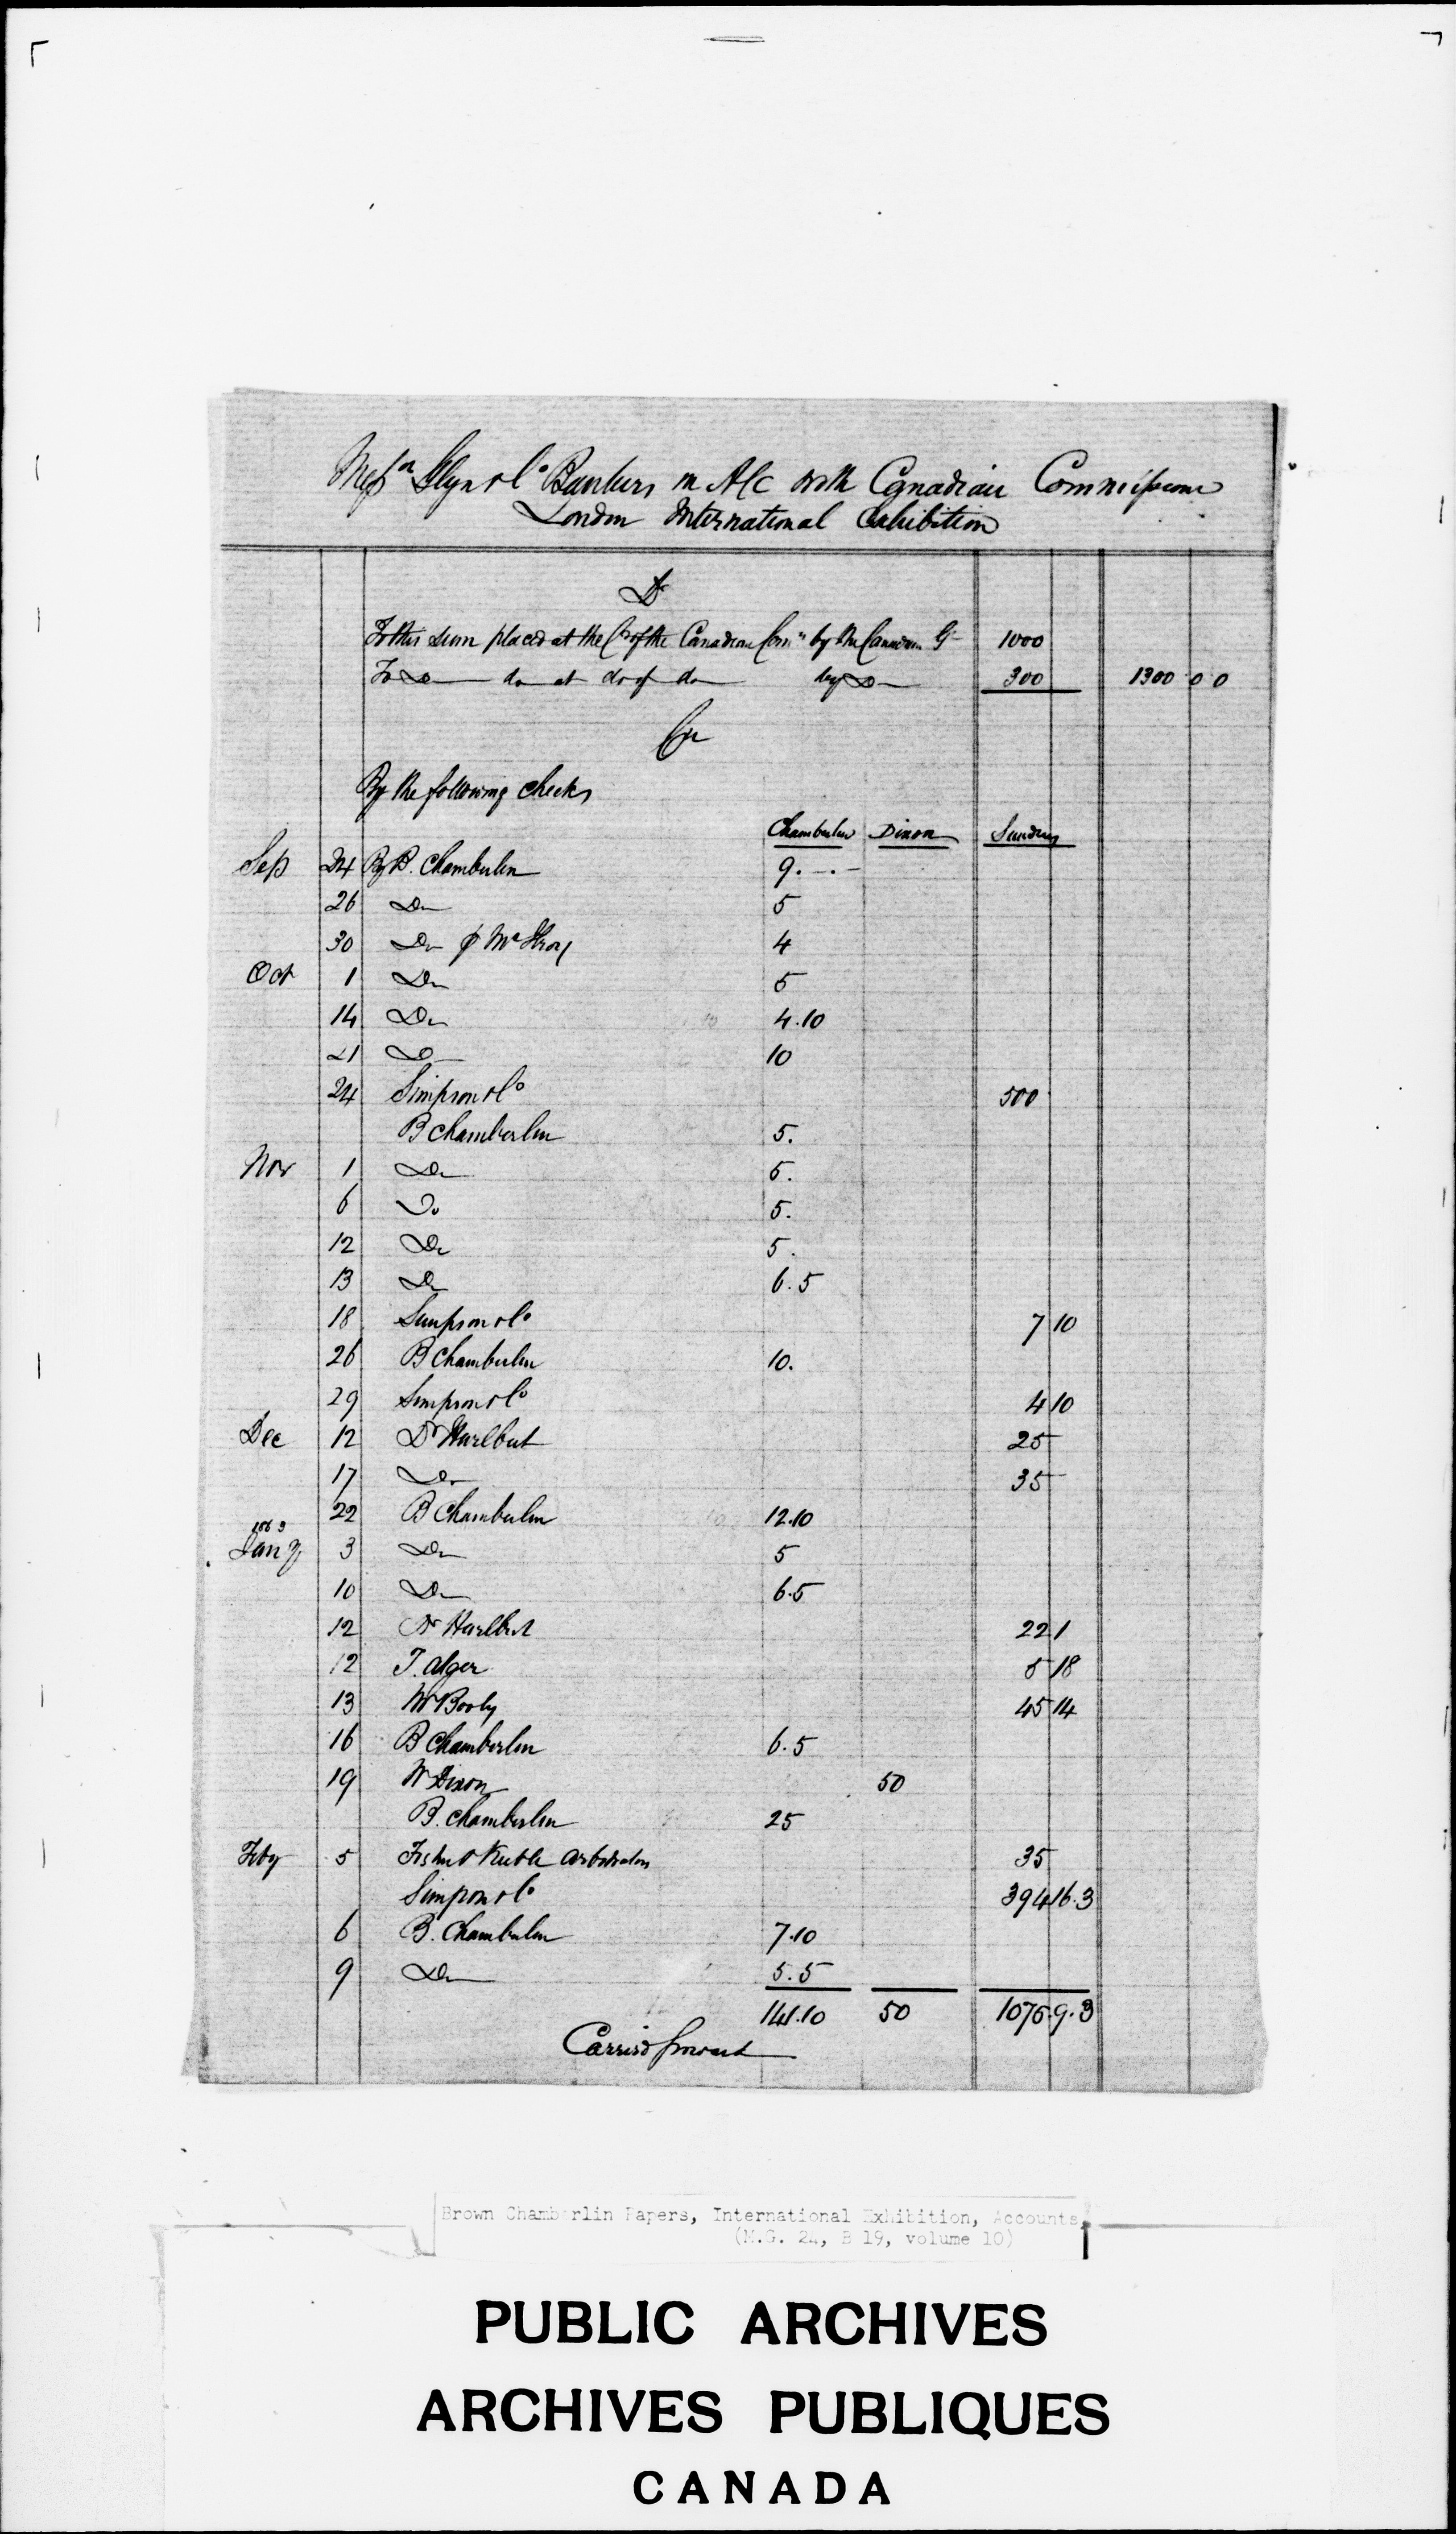 Messrs Glyn & Co Bankers in A/c with Canadian Commissioners
London International Exhibition
Dr
To this sum placed at the Cr of the Canadian Comrs by the Canadian Gt 1000
To Do do at do of do by Do 300 1300 0 0
Cr
By the following checks
Chamberlin Dixon Sundries
Sep 24 By B. Chamberlin 9.-.-
26 Do 5
30 Do 4
Oct 1 Do 5
14 Do 4.10
21 Do 10
24 Simpson & Co 500
B Chamberlin 5.
Nov 1 Do 5.
6 Do 5.
12 Do 5.
13 Do 6.5
18 Simpson & Co 7 10
26 B Chamberlin 10.
29 Simpson & Co 4 10
Dec 12 Dr Hurlbut 25
17 Do 35
22 B Chamberlin 12.10
1863
Jany 3 Do 5
10 Do 6.5
12 Dr Hurlbut 22 1
12 T. Alger 5 18
13 Wm Booly 45 14
16 B Chamberlin 6.5
19 W Dixon 50
B. Chamberlin 25
Feby 5 Fisher & Keeble Arbitrators 35
Simpson & Co 394 16.3
6 B. Chamberlin 7.10
9 Do 5.5
141.10 50 1075.9.3
Carried forward
Brown Chamberlin Papers, International Exhibition, Accounts
(M.G. 24, B 19, volume 10)
PUBLIC ARCHIVES
ARCHIVES PUBLIQUES
CANADA